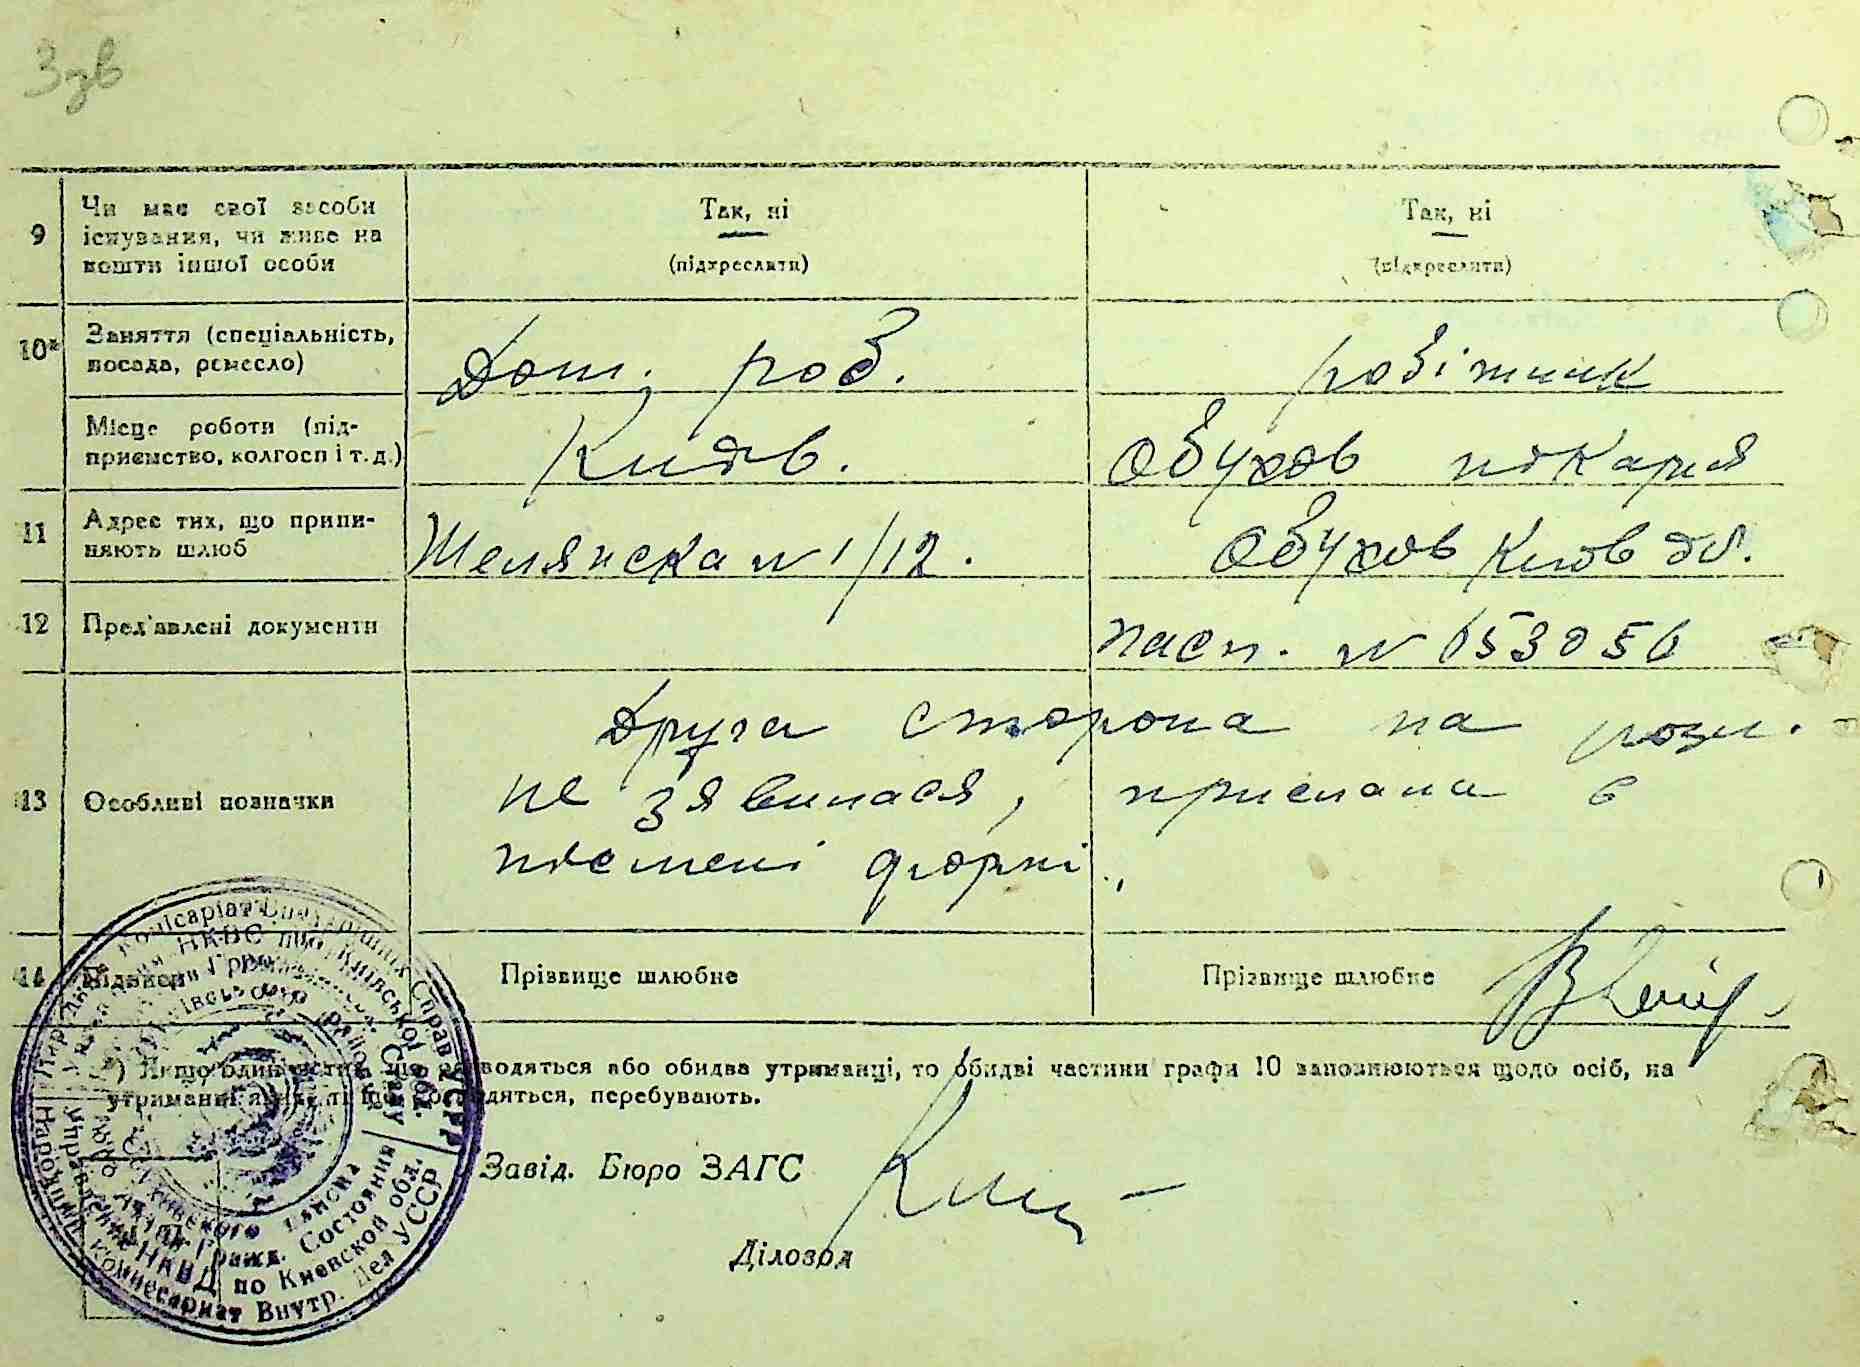 3зв
9 Чи має свої засоби
існування, чи живе на
кошти іншої особи
Так, ні
(підкреслити)
Так, ні
(підкреслити)
10* Заняття (спеціальність,
посада, ремесло)
Дом. роб.
робітник
Місце роботи (під-
приємство, колгосп і т. д.)
Київ.
Обухов пекарня
11 Адрес тих, що припи-
няють шлюб
Шелянска № 1/12.
Обухов Київ об.
12 Пред'явлені документи
пасп. № 653056
13 Особливі позначки
Друга сторона на розл.
не зявилася, прислала в
письмені формі.
14 Підписи
Прізвище шлюбне
Прізвище шлюбне
*) Якщо один з тих, що розводяться або обидва утриманці, то обидві частини графи 10 заповнюються щодо осіб, на
утриманні яких ті, що розводяться, перебувають.
Завід. Бюро ЗАГС
Діловод
Народний Комісаріат Внутрішніх Справ УСРР
Управління НКВС по Київській обл.
Народный Комиссариат Внутр. Дел УССР
Управление НКВД по Киевской обл.
Бюро Актов Гражд. Состояния
района